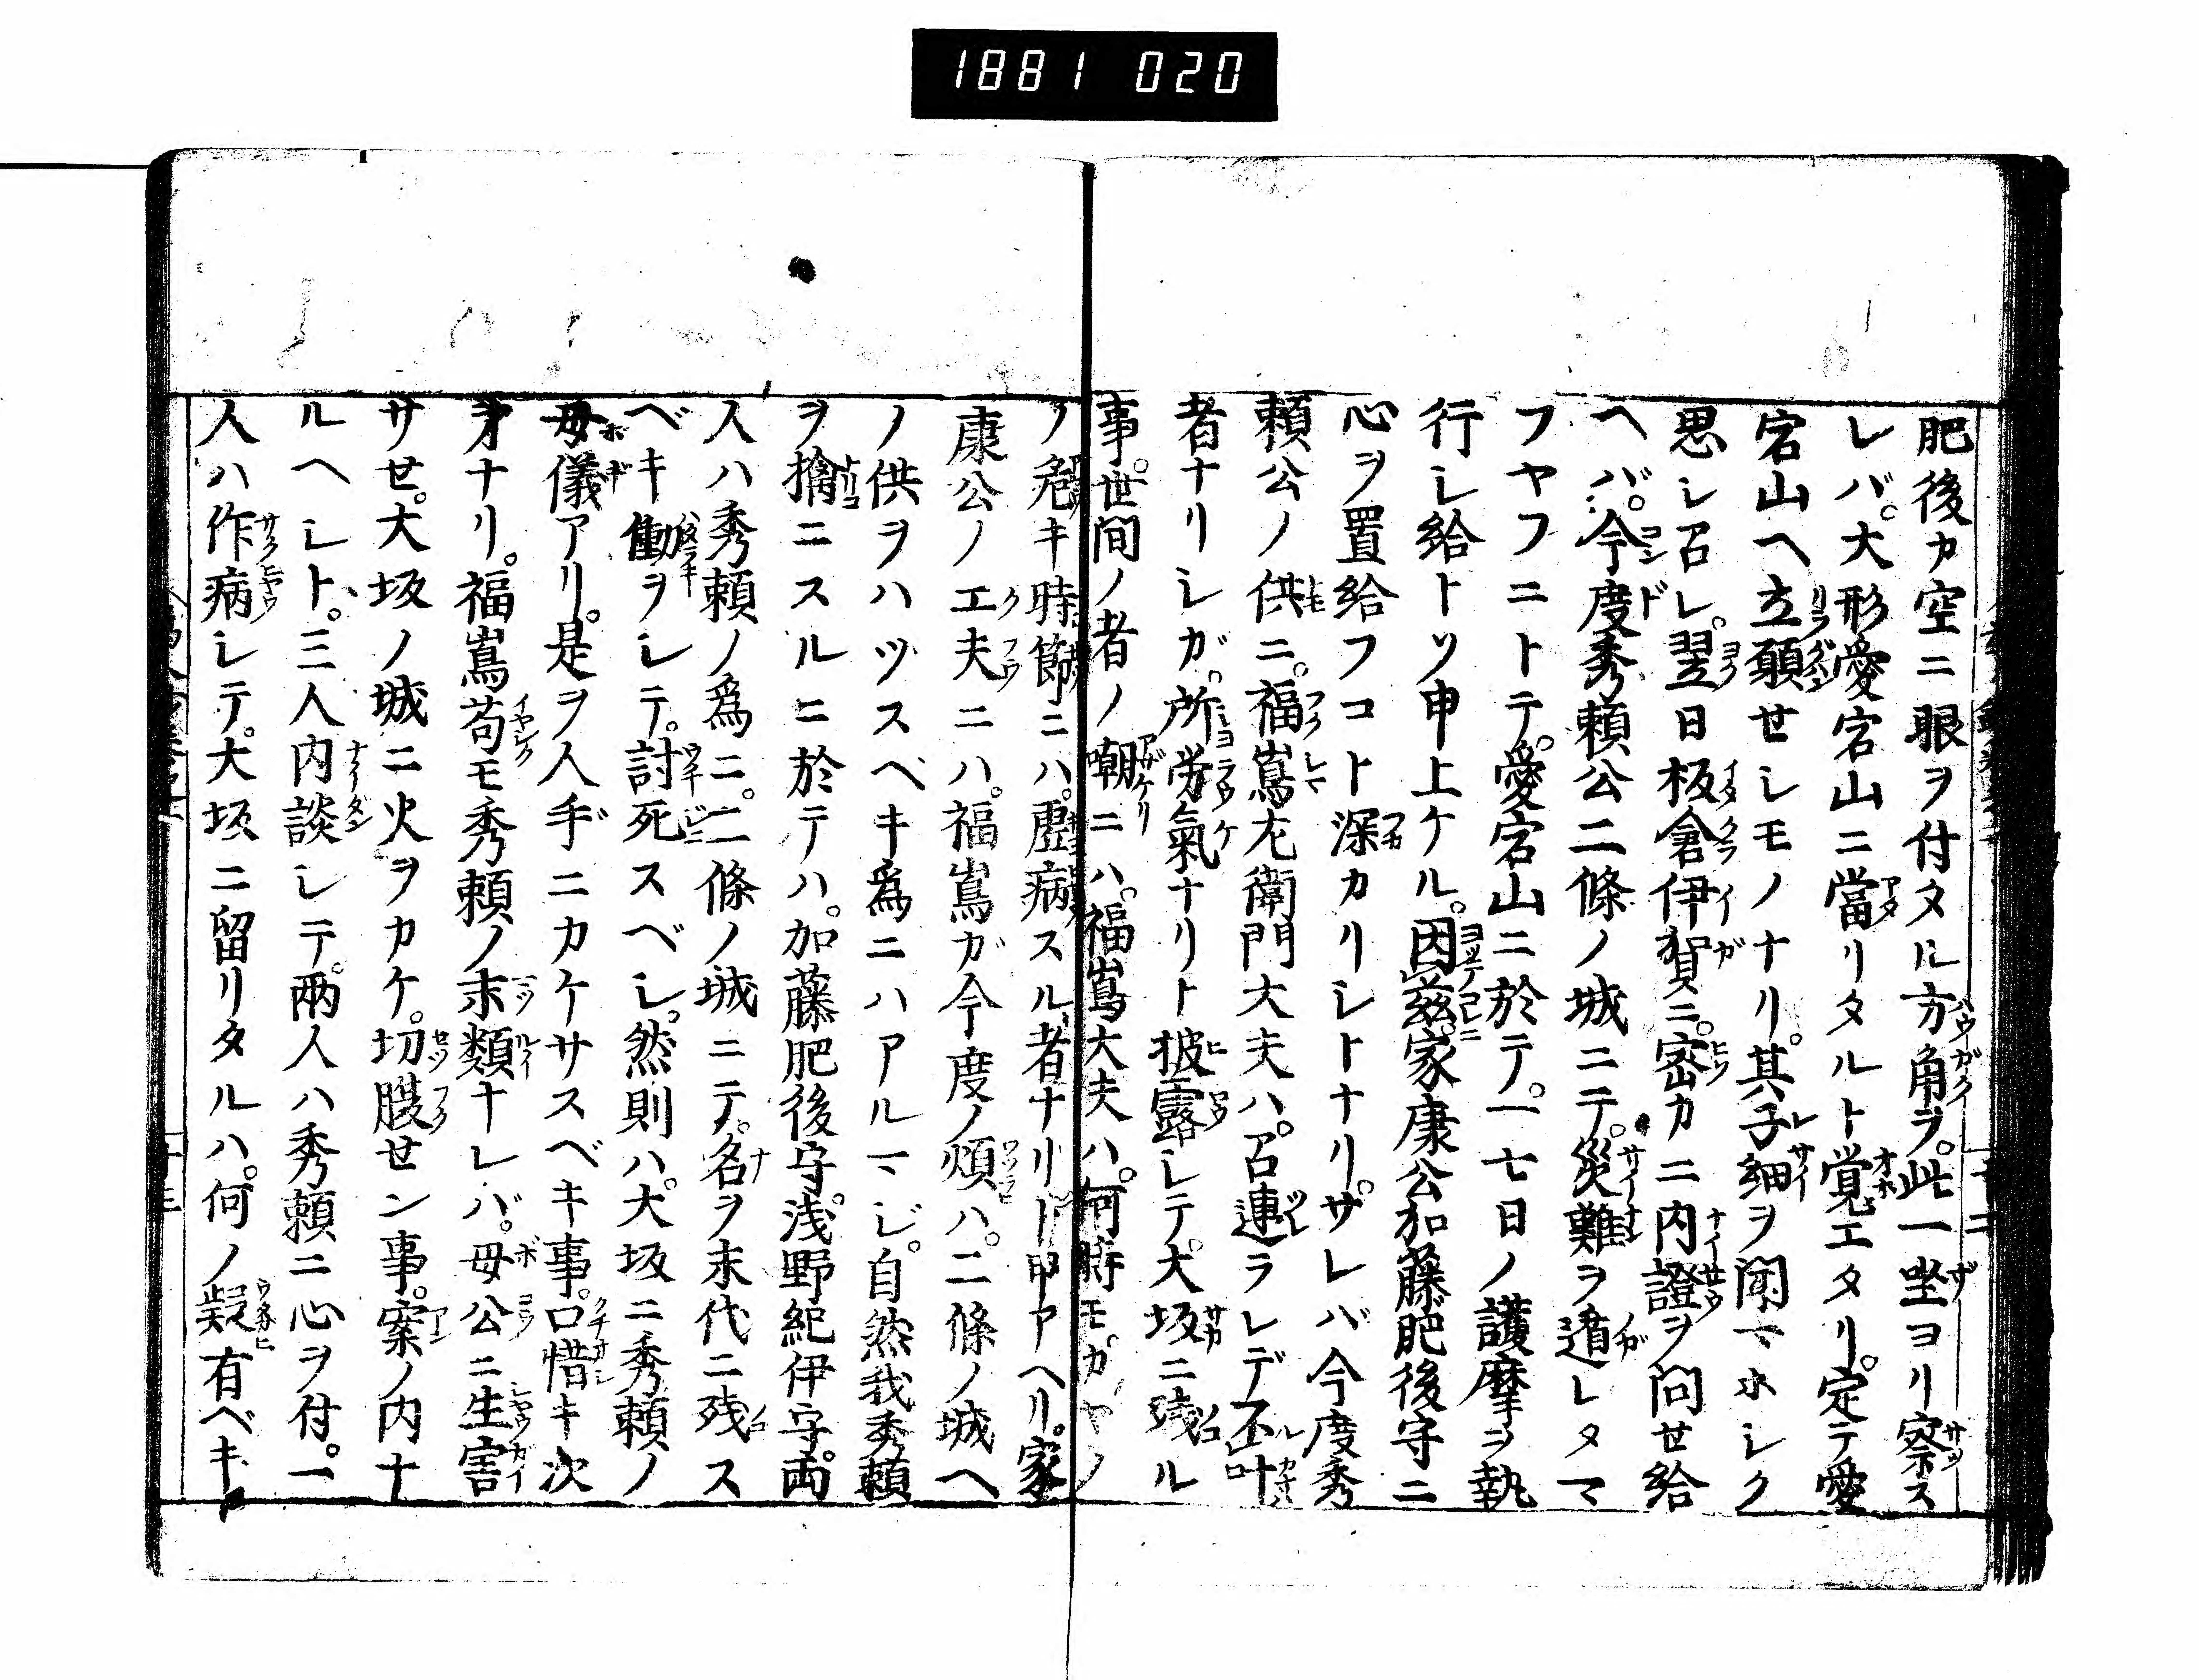 1881 020
肥後カ空ニ眼ヲ付タル方角ヲ。此一坐ヨリ察ス
レバ。大形愛宕山ニ當リタルト覚エタリ。定テ愛
宕山ヘ立願せシモノナリ。其子細ヲ聞マホシク
思シ召シ。翌日板倉伊賀ニ。密カニ内證ヲ問せ給
ヘバ。今度秀頼公二條ノ城ニテ。災難ヲ遁レタマ
フヤフニトテ。愛宕山ニ於テ。一七日ノ護摩ヲ執
行シ給トソ申上ケル。因茲家康公加藤肥後守ニ
心ヲ置給フコト深カリシトナリ。サレバ今度秀
頼公ノ供ニ。福嶌左衛門大夫ハ。召連ラレデ不叶
者ナリシガ。所労氣ナリト披露シテ。大坂ニ残ル
事。世間ノ者ノ嘲ニハ。福嶌大夫ハ。何時モカヤノ
ノ危キ時節ニハ。虚病スル者ナリト申アヘリ。家
康公ノ工夫ニハ。福嶌ガ今度ノ煩ハ。二條ノ城ヘ
ノ供ヲハヅスベキ爲ニハアルマジ。自然我秀頼
ヲ擒ニスルニ於テハ。加藤肥後守。浅野紀伊守。両
人ハ秀頼ノ爲ニ。二條ノ城ニテ。名ヲ末代ニ残ス
ベキ働ヲシテ。討死スベシ。然則ハ。大坂ニ秀頼ノ
母儀アリ。是ヲ人手ニカケサスベキ事。口惜キ次
才ナリ。福嶌苟モ秀頼ノ末類ナレバ。母公ニ生害
サせ。大坂ノ城ニ火ヲカケ。切腹せン事。案ノ内ナ
ルヘシト。三人内談シテ。兩人ハ秀頼ニ心ヲ付。一
人ハ作病シテ。大坂ニ留リタルハ。何ノ疑有ベキ。